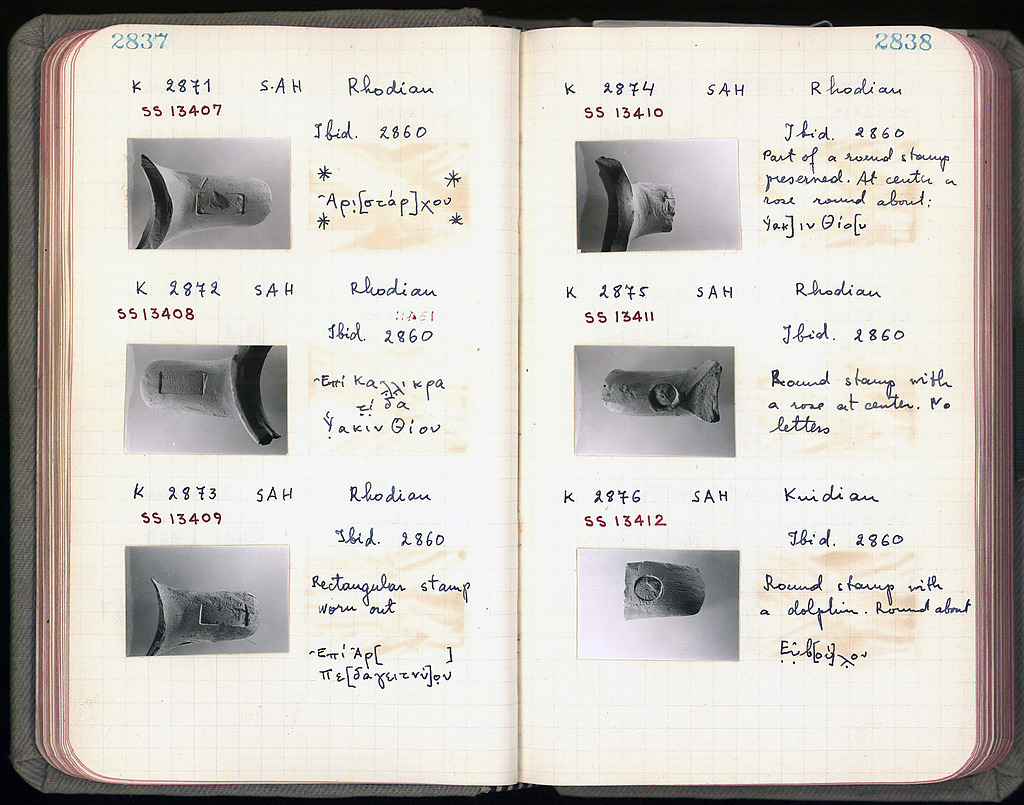 2837
K 2871 SAH Rhodian
SS 13407
Ibid. 2860
* *
Ἀρι[στάρ]χου
* *
K 2872 SAH Rhodian
SS 13408
Ibid. 2860
Ἐπὶ Καλλικρα
τίδα
Ὑακινθίου
K 2873 SAH Rhodian
SS 13409
Ibid. 2860
Rectangular stamp
worn out
Ἐπὶ Ἀρ[ ]
Πε[δαγειτνύ]ου
2838
K 2874 SAH Rhodian
SS 13410
Ibid. 2860
Part of a round stamp
preserved. At center a
rose round about:
Ὑακ]ινθίο[υ
K 2875 SAH Rhodian
SS 13411
Ibid. 2860
Round stamp with
a rose at center. No
letters
K 2876 SAH Knidian
SS 13412
Ibid. 2860
Round stamp with
a dolphin. Round about